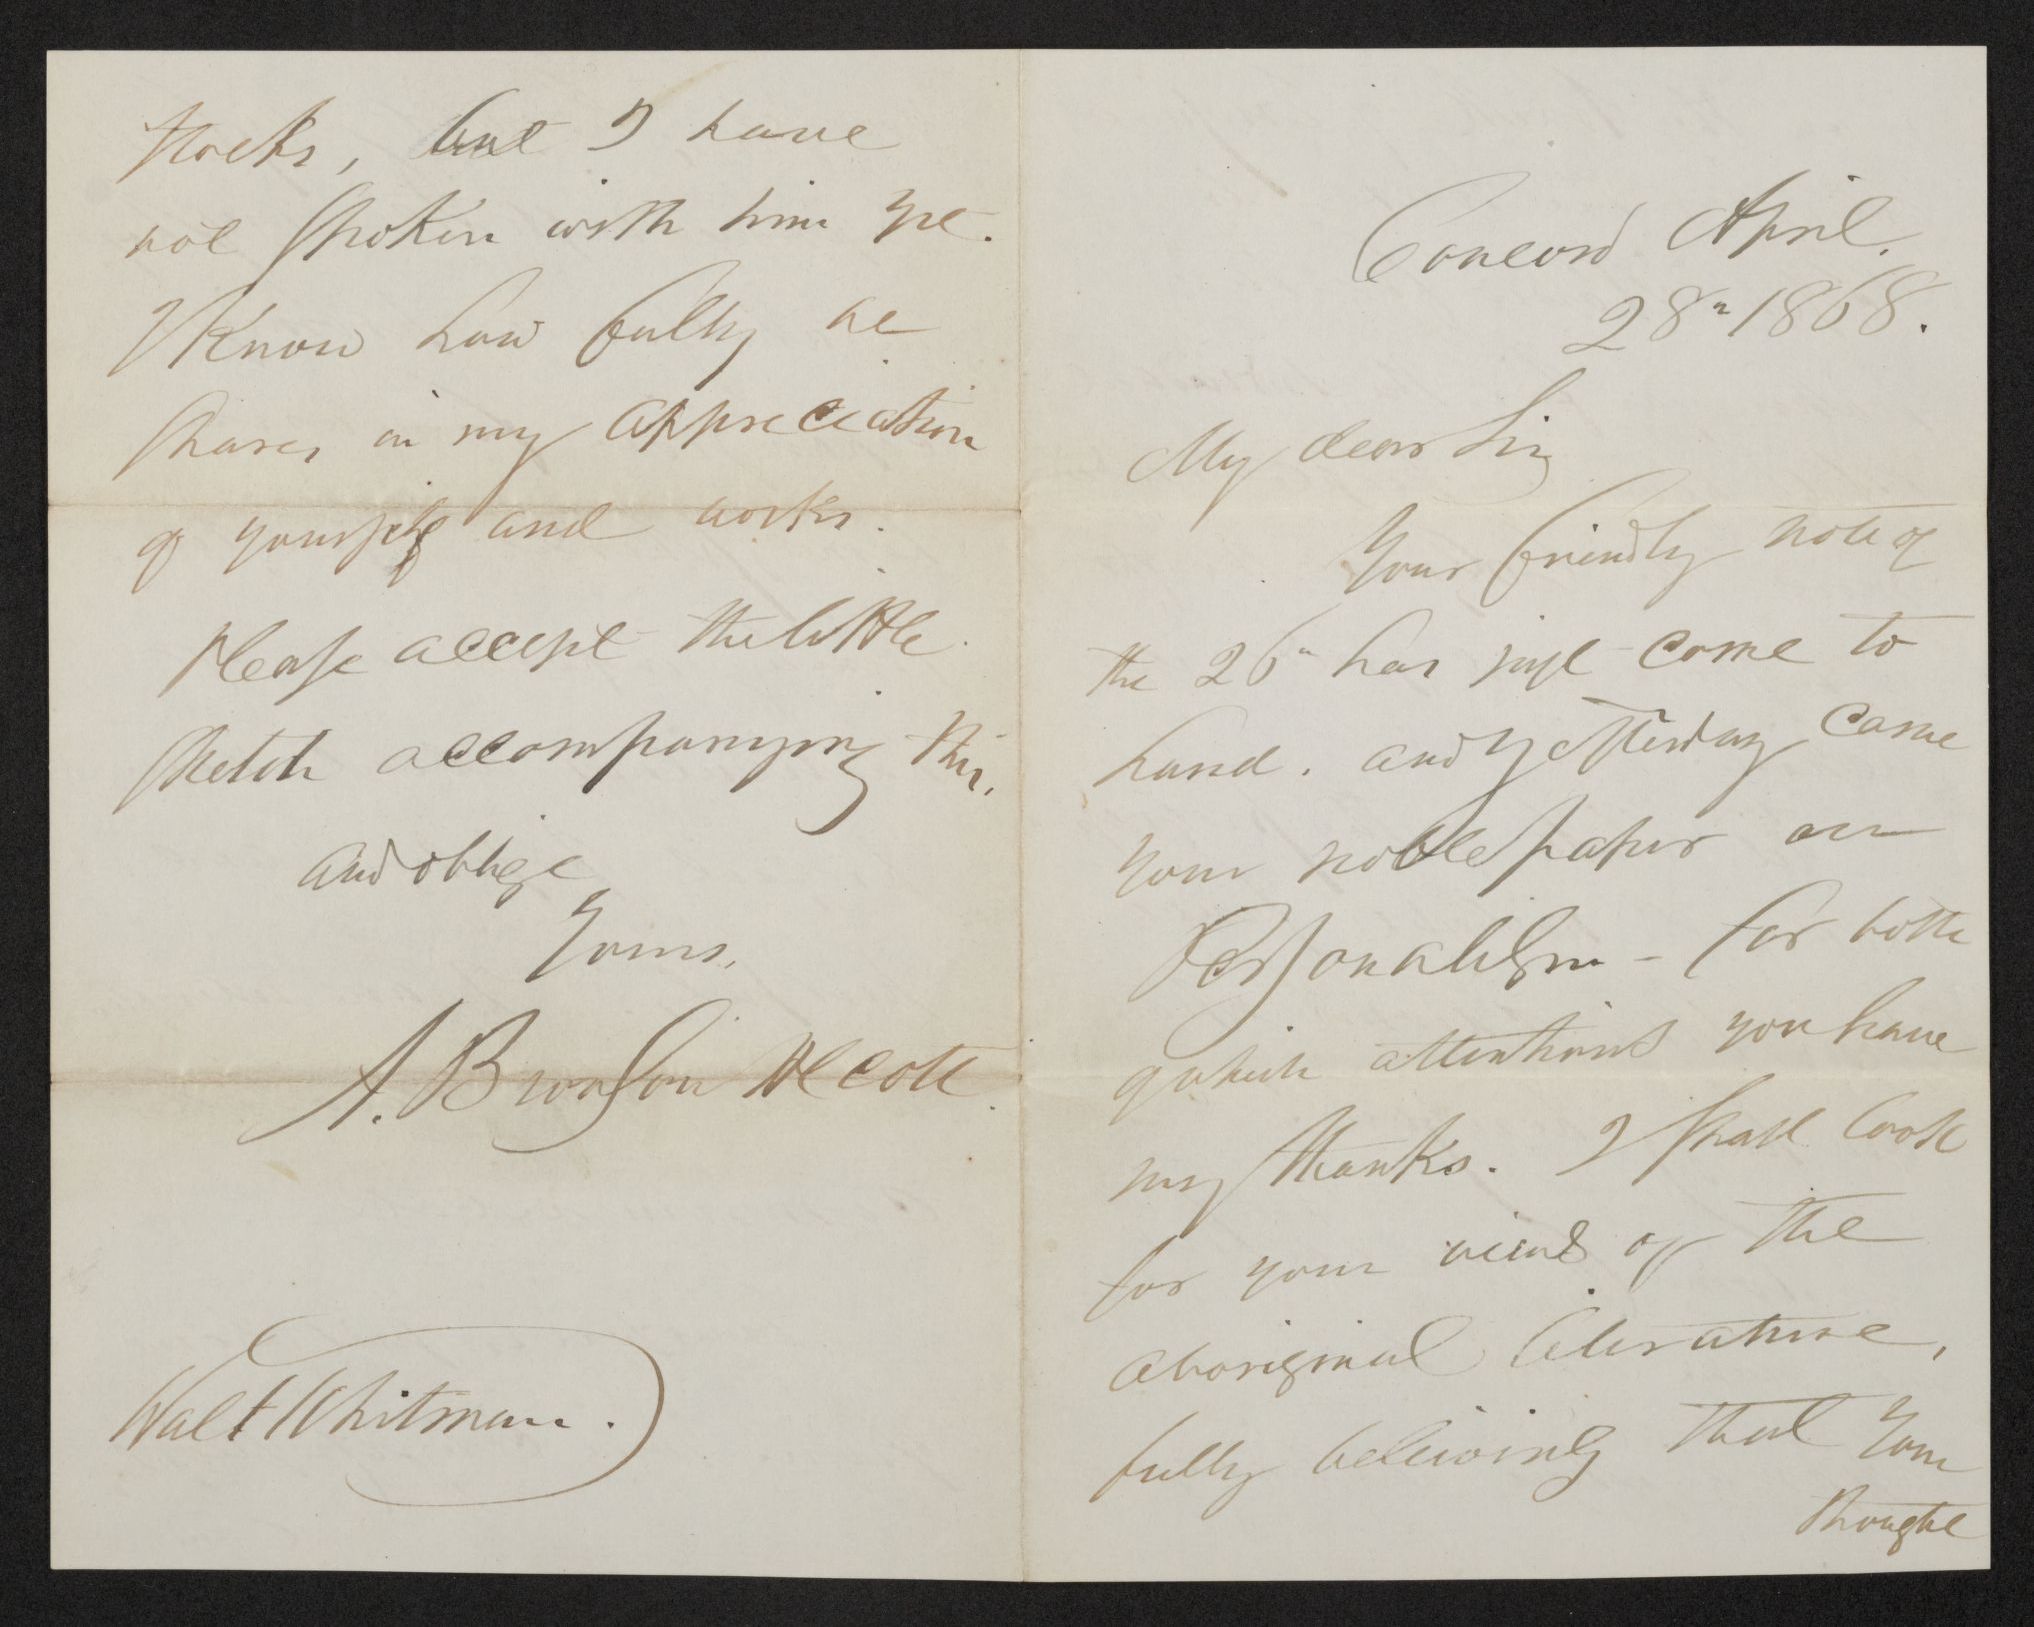 Concord April.
28" 1868.
My dear Sir,
Your friendly note of
the 26" has just come to
hand. and yesterday came
your noble paper on
Personalism - for both
which attentions you have
my thanks. I shall look
for your views of the
aboriginal literature,
fully believing that your
thought
stocks, but I have
not spoken with him yet.
I know how fully he
shares in my appreciation
of yourself and works.
Please accept the little
sketch accompanying this.
and oblige
Yours,
A. Bronson Alcott.
Walt Whitman.